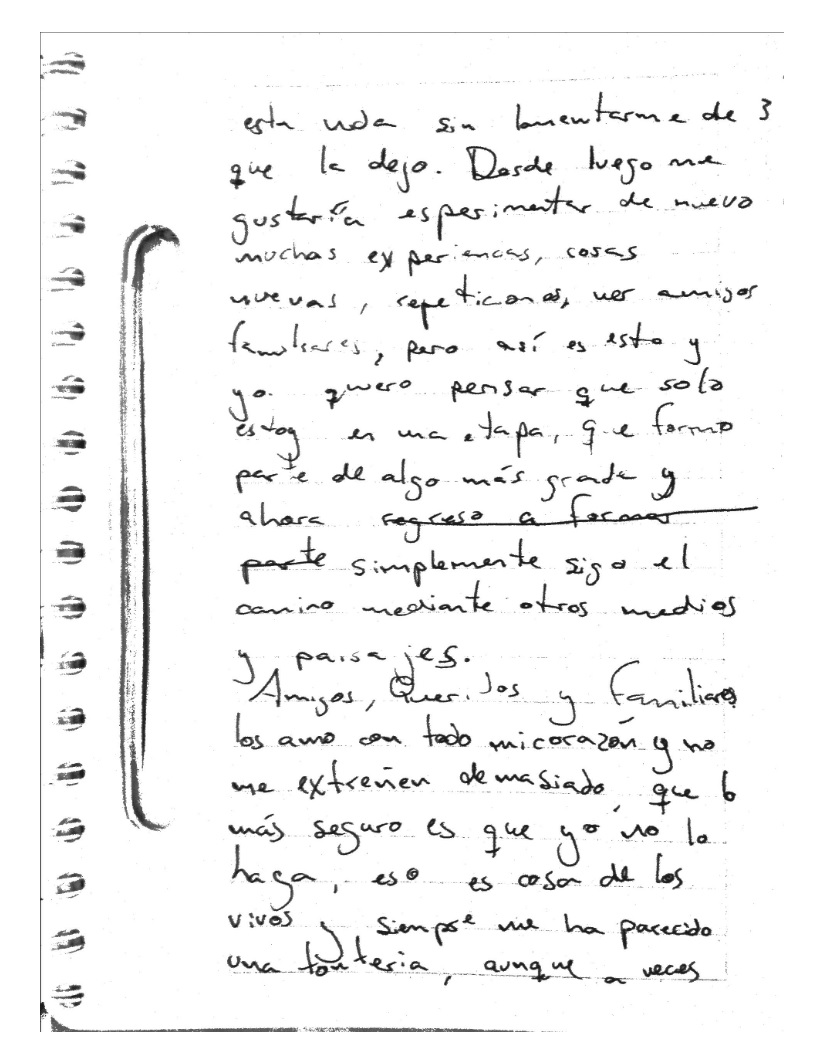 esta vida sin lamentarme de 3
que la dejo. Desde luego me
gustaría esperimentar de nuevo
muchas experiencias, cosas
nuevas, repeticiones, ver amigos
familiares, pero así es esto y
yo quiero pensar que solo
estoy en una etapa, que formo
parte de algo más grade y
ahora regreso a formar
parte simplemente sigo el
camino mediante otros medios
y paisajes.
Amigos, Queridos y familiares
los amo con todo mi corazón y no
me extreñen demasiado, que lo
más seguro es que yo no lo
haga, eso es cosa de los
vivos y siempre me ha parecido
una tontería, aunque a veces